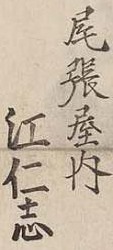 尾張屋内
江仁志